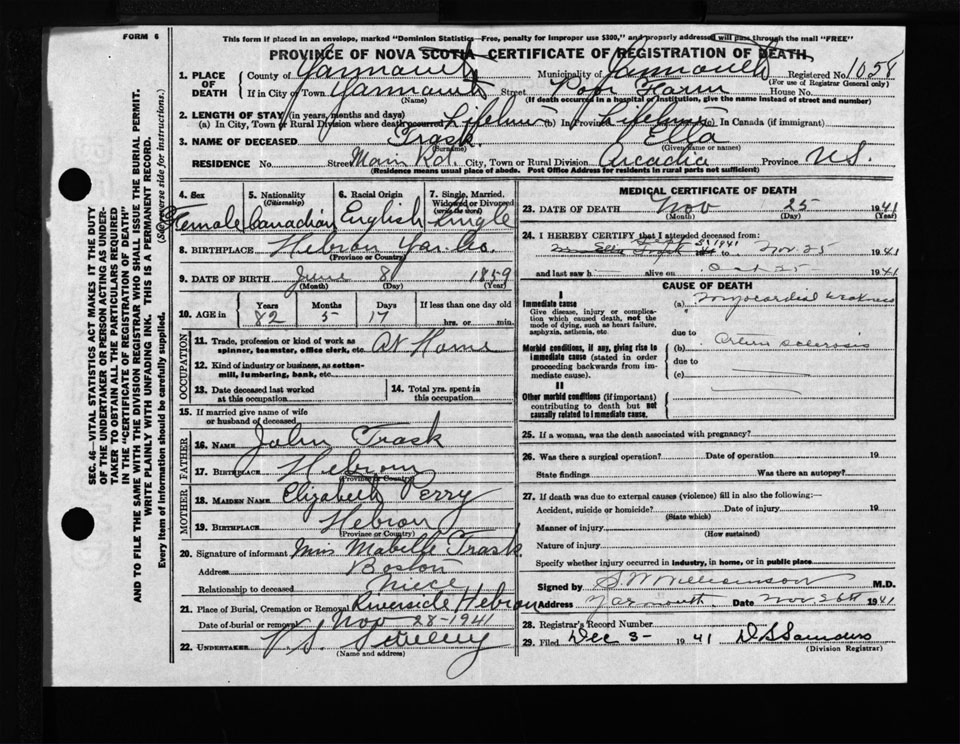 FORM 6
This form if placed in an envelope, marked "Dominion Statistics—Free, penalty for improper use $300," and properly addressed will pass through the mail "FREE"
PROVINCE OF NOVA SCOTIA CERTIFICATE OF REGISTRATION OF DEATH
1. PLACE OF DEATH
County of Yarmouth Municipality of Yarmouth Registered No. 1054
(For use of Registrar General only)
If in City or Town Yarmouth Street Poor Farm House No.
(Name) (If death occurred in a hospital or institution, give the name instead of street and number)
2. LENGTH OF STAY (in years, months and days)
(a) In City, Town or Rural Division where death occurred Lifetime (b) In Province Lifetime (c) In Canada (if immigrant)
3. NAME OF DECEASED Trask Ella
(Surname) (Given name or names)
RESIDENCE No. Street Main Rd. City, Town or Rural Division Arcadia Province N.S.
(Residence means usual place of abode. Post Office Address for residents in rural parts not sufficient)
4. Sex
Female
5. Nationality
(Citizenship)
Canadian
6. Racial Origin
English
7. Single, Married, Widowed or Divorced
(write the word)
Single
8. BIRTHPLACE Hebron Yar. Co.
(Province or Country)
9. DATE OF BIRTH June 8 1859
(Month) (Day) (Year)
10. AGE in Years Months Days If less than one day old
82 5 17 hrs. or min.
OCCUPATION
11. Trade, profession or kind of work as
spinner, teamster, office clerk, etc. At Home
12. Kind of industry or business, as cotton-
mill, lumbering, bank, etc.
13. Date deceased last worked
at this occupation
14. Total yrs. spent in
this occupation
15. If married give name of wife
or husband of deceased
FATHER
16. NAME John Trask
17. BIRTHPLACE Hebron
(Province or Country)
MOTHER
18. MAIDEN NAME Elizabeth Perry
19. BIRTHPLACE Hebron
(Province or Country)
20. Signature of informant Miss Mabelle Trask
Address Boston
Relationship to deceased Niece
21. Place of Burial, Cremation or Removal Riverside Hebron
Date of burial or removal Nov 28-1941
22. UNDERTAKER V. S. Sweeny
(Name and address)
MEDICAL CERTIFICATE OF DEATH
23. DATE OF DEATH Nov 25 1941
(Month) (Day) (Year)
24. I HEREBY CERTIFY that I attended deceased from:
Sept 1941 to Nov. 25 1941
and last saw h alive on Oct 25 1941
CAUSE OF DEATH
I
Immediate cause (a) Myocardial weakness
Give disease, injury or complica-
tion which caused death, not the
mode of dying, such as heart failure,
asphyxia, asthenia, etc.
due to
Morbid conditions, if any, giving rise to
immediate cause (stated in order
proceeding backwards from im-
mediate cause).
(b) Arterio sclerosis
due to
(c)
II
Other morbid conditions (if important)
contributing to death but not
causally related to immediate cause.
25. If a woman, was the death associated with pregnancy?
26. Was there a surgical operation? Date of operation 19
State findings Was there an autopsy?
27. If death was due to external causes (violence) fill in also the following:—
Accident, suicide or homicide? Date of injury 19
(State which)
Manner of injury
(How sustained)
Nature of injury
Specify whether injury occurred in industry, in home, or in public place
Signed by S. W. Williamson M.D.
Address Yarmouth Date Nov. 26th 1941
28. Registrar's Record Number
29. Filed Dec 3- 1941 D S Saunders
(Division Registrar)
SEC. 46—VITAL STATISTICS ACT MAKES IT THE DUTY
OF THE UNDERTAKER OR PERSON ACTING AS UNDER-
TAKER TO OBTAIN ALL THE PARTICULARS REQUIRED
IN THE "CERTIFICATE OF REGISTRATION OF DEATH"
AND TO FILE THE SAME WITH THE DIVISION REGISTRAR WHO SHALL ISSUE THE BURIAL PERMIT.
WRITE PLAINLY WITH UNFADING INK. THIS IS A PERMANENT RECORD.
Every item of information should be carefully supplied. (See reverse side for instructions.)